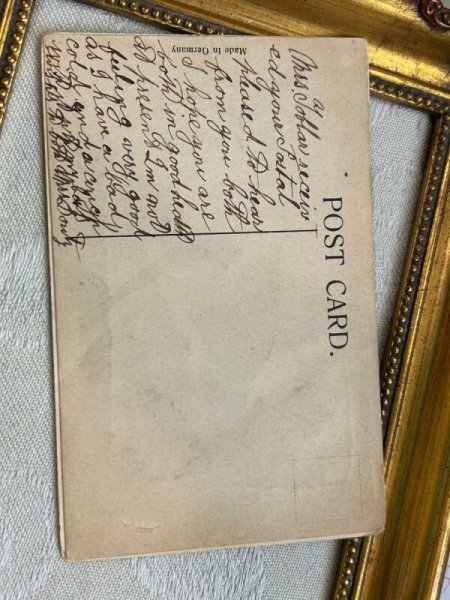 POST CARD.
Made in Germany
Mrs. Tollar reciev
ed your Postal
pleased to hear
from you both
I hope you are
both in good health
At present I'm not
feeling very good
as I have a bad
cold and cough